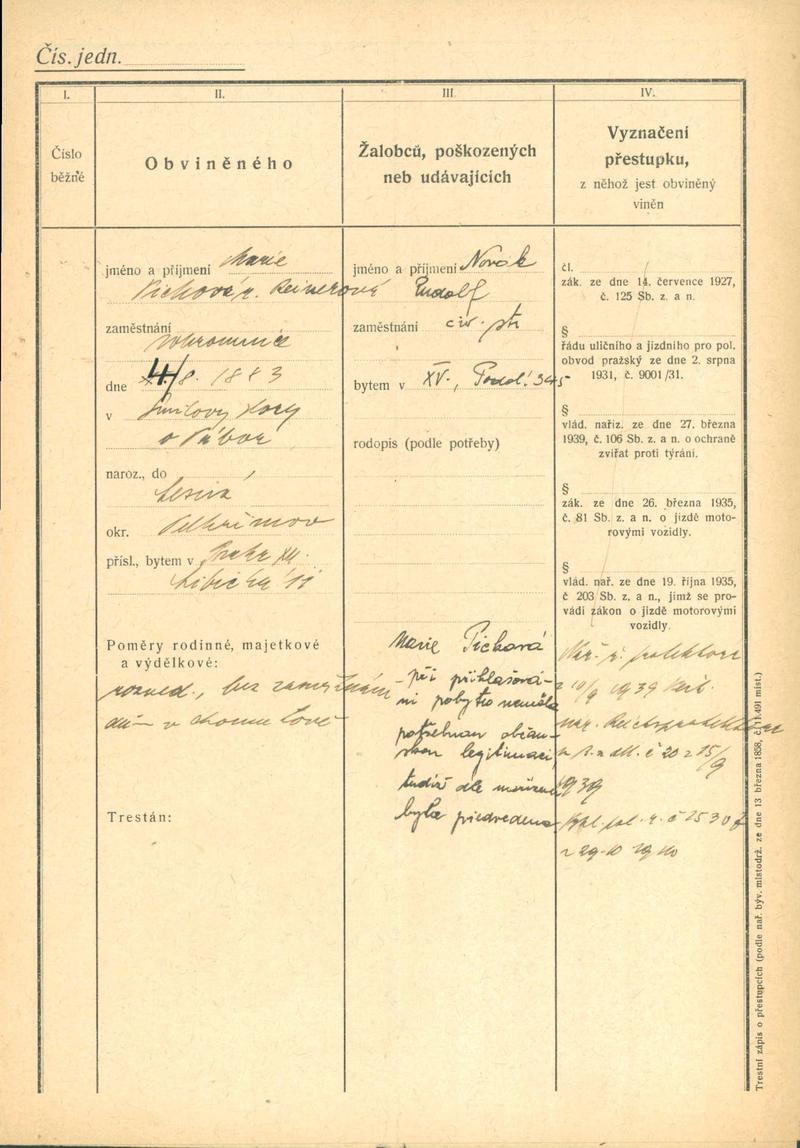 Čís. jedn.
I.
II.
III.
IV.
Číslo
běžné
Obviněného
Žalobců, poškozených
neb udávajících
Vyznačení
přestupku,
z něhož jest obviněný
viněn
jméno a příjmení Marie
Píchová r. Reinerová
zaměstnání
soukromnice
dne 4/8. 1883
v Smilovy Hory
o Tábor
naroz., do
Lesná
okr. Pelhřimov
přísl., bytem v Praha XII.
Libická 11
Poměry rodinné, majetkové
a výdělkové:
rozved., bez zaměstnání
Trestán:
jméno a příjmení Novák
Rudolf
zaměstnání civ. str
bytem v XV., Podol. 345
rodopis (podle potřeby)
Marie Píchová
při přihlašová-
ní pobytu neměla
potřebnou občan-
skou legitimaci
tudíž dle nařízení
byla předvedena
čl.
zák. ze dne 14. července 1927,
č. 125 Sb. z. a n.
§
řádu uličního a jízdního pro pol.
obvod pražský ze dne 2. srpna
1931, č. 9001/31.
§
vlád. naříz. ze dne 27. března
1939, č. 106 Sb. z. a n. o ochraně
zvířat proti týrání.
§
zák. ze dne 26. března 1935,
č. 81 Sb. z. a n. o jízdě moto-
rovými vozidly.
§
vlád. nař. ze dne 19. října 1935,
č 203 Sb. z. a n., jímž se pro-
vádí zákon o jízdě motorovými
vozidly.
Nař. ř. protektora
z 10/9 1939
nař. Reichsprotektora
č 20 z 15/9
1939
vyhl. pol. ř. č 2530
z 29-10 1940
Trestní zápis o přestupcích (podle nař. býv. místodrž. ze dne 13 března 1858, č. 11.491 míst.)